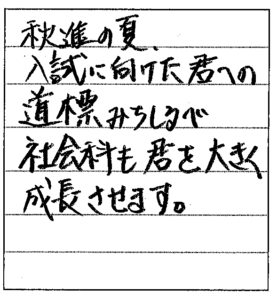 秋進の夏、
入試に向けた君への
道標みちしるべ
社会科も君を大きく
成長させます。